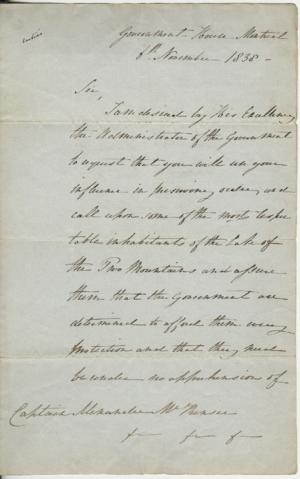 Government House Montreal
6th November 1838 -
Sir,
I am desired by His Excellency
the Administrator of the Government
to request that you will use your
influence in preserving order, and
call upon some of the most respec
table inhabitants of the Lake of
the Two Mountains and assure
them that the Government are
determined to afford them every
protection and that they need
be under no apprehension of
Captain